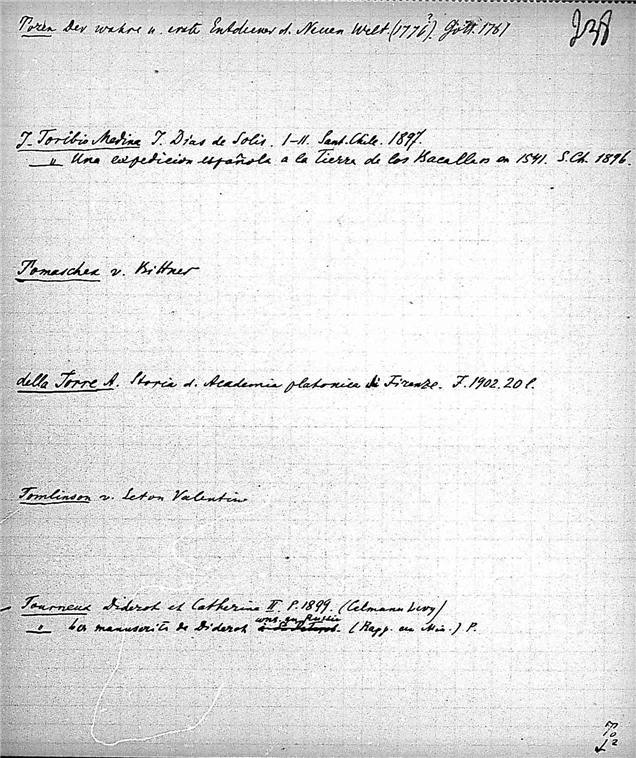 Tozen Der wahre u. erste Entdecker d. Neuen Welt. (1776?). Gött. 1761
J. Toribio Medina J. Dias de Solis. I-II. Sant. Chile. 1897.
" Una expedicion española a la tierra de los Bacallaos en 1541. S.Ch. 1896.
Tomaschek v. Bittner
della Torre A. Storia d. Academia platonica di Firenze. F. 1902. 20 l.
Tomlinson v. Seton Valentin
Tourneux Diderot et Catherine II. P. 1899. (Calmann Levy)
" Les manuscrits de Diderot cons. en Russie (Rapp. au Min.) P.
To